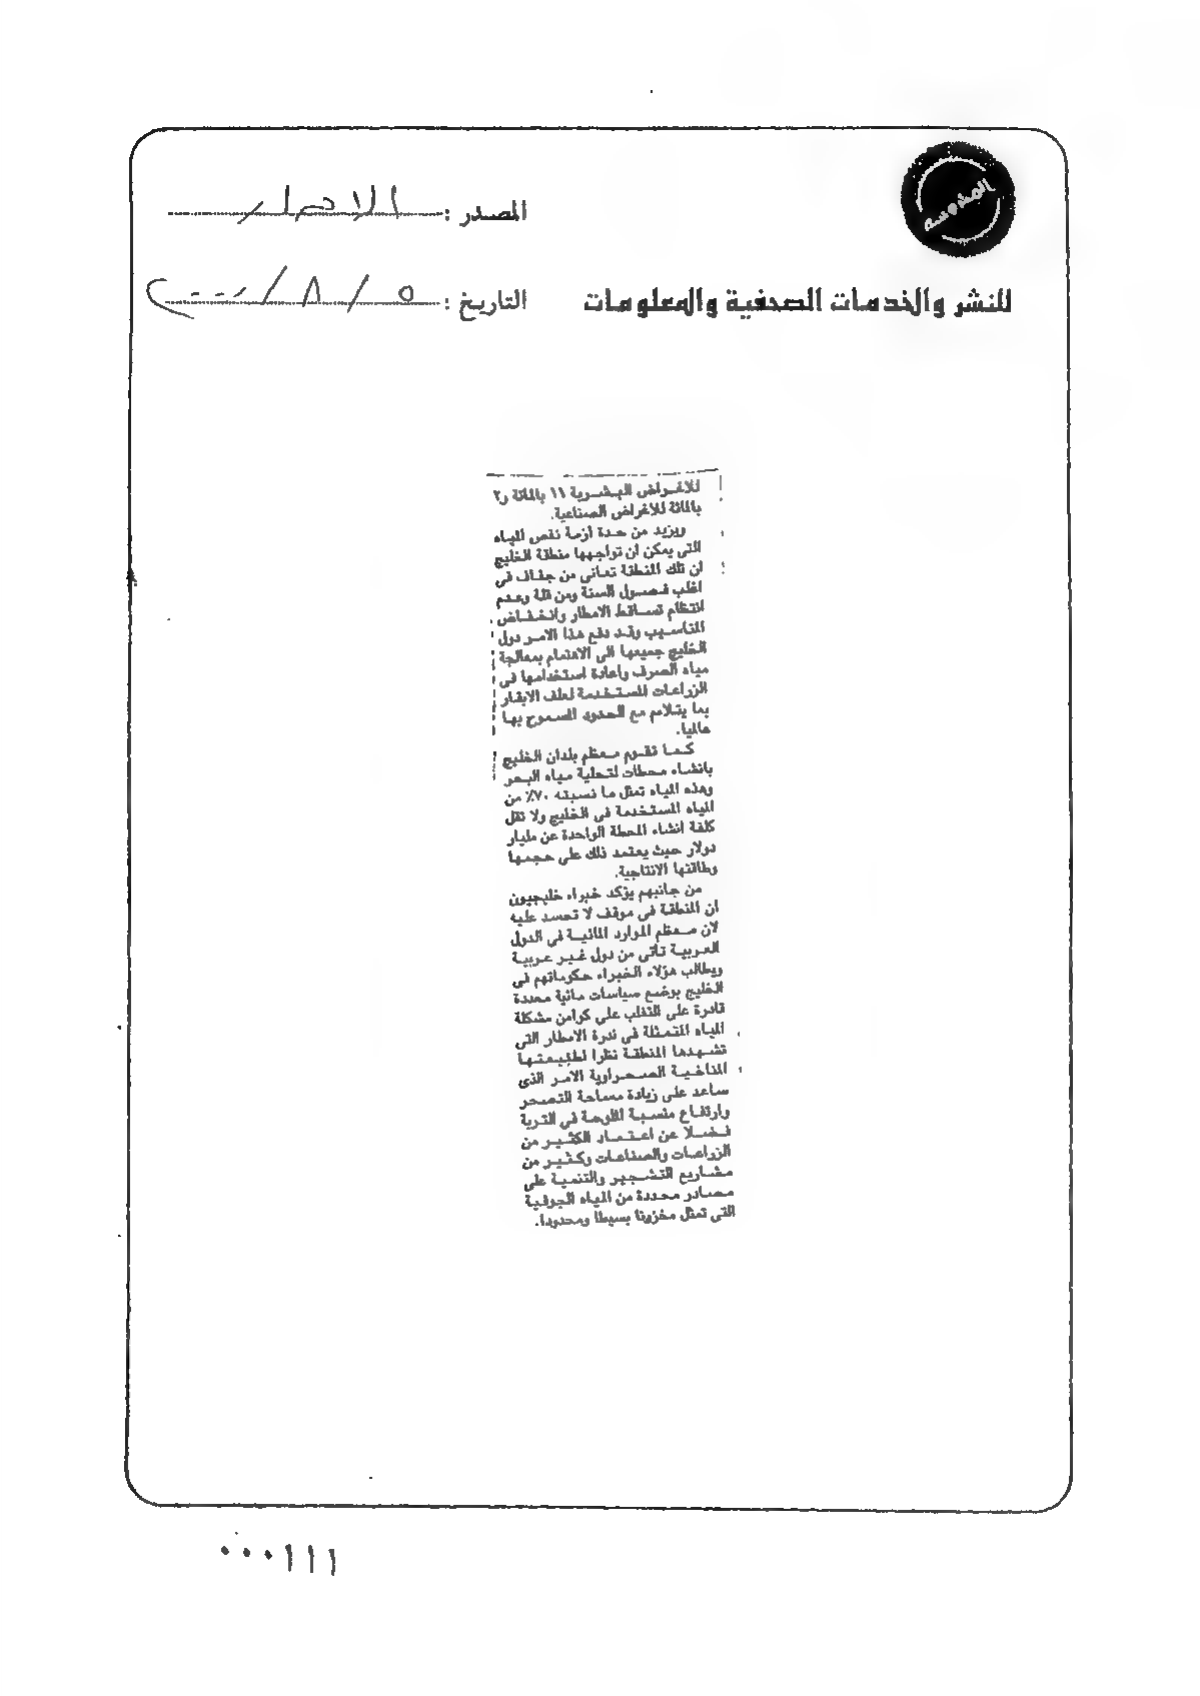 المصدر : الاحرار
للنشر والخدمات الصحفية والمعلومات
التاريخ : ٥ / ٨ / ٢٠٠٠
للاغراض البشرية ١١ بالمائة و٢
بالمائة للاغراض الصناعية.
ويزيد من حدة أزمة نقص المياه
التى يمكن ان تواجهها منطقة الخليج
ان تلك المنطقة تعانى من جفاف فى
اغلب فصول السنة ومن قلة وعدم
انتظام تساقط الامطار وانخفاض
المناسيب وقد دفع هذا الامر دول
الخليج جميعها الى الاهتمام بمعالجة
مياه الصرف واعادة استخدامها فى
الزراعات المستخدمة لعلف الابقار
بما يتلاءم مع الحدود المسموح بها
عالميا.
كما تقوم معظم بلدان الخليج
بانشاء محطات لتحلية مياه البحر
وهذه المياه تمثل ما نسبته ٧٠٪ من
المياه المستخدمة فى الخليج ولا تقل
كلفة انشاء المحطة الواحدة عن مليار
دولار حيث يعتمد ذلك على حجمها
وطاقتها الانتاجية.
من جانبهم يؤكد خبراء خليجيون
ان المنطقة فى موقف لا تحسد عليه
لان معظم الموارد المائية فى الدول
العربية تأتى من دول غير عربية
ويطالب هؤلاء الخبراء حكوماتهم فى
الخليج بوضع سياسات مائية محددة
قادرة على التغلب على كوامن مشكلة
المياه المتمثلة فى ندرة الامطار التى
تشهدها المنطقة نظرا لطبيعتها
المناخية الصحراوية الامر الذى
ساعد على زيادة مساحة التصحر
وارتفاع منسبة الملوحة فى التربة
فضلا عن اعتماد الكثير من
الزراعات والصناعات وكثير من
مشاريع التشجير والتنمية على
مصادر محددة من المياه الجوفية
التى تمثل مخزونا بسيطا ومحدودا.
٠٠٠١١١